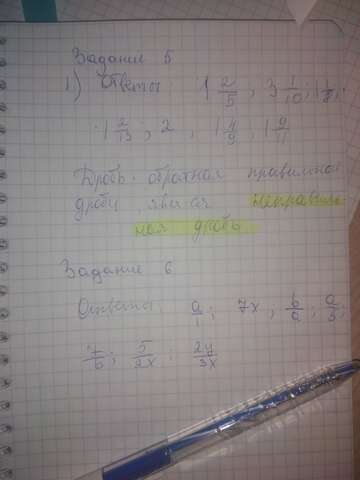 Задание 5
1) Ответы: 1 2/5; 3 1/10; 1 1/8;
1 2/13; 2; 1 4/9; 1 9/11
Дробь обратная правильной
дроби, явл-ся неправиль
ная дробь.
Задание 6
Ответы: a/1; 7x; b/a; a/3;
7/b; 5/2x; 2y/3x